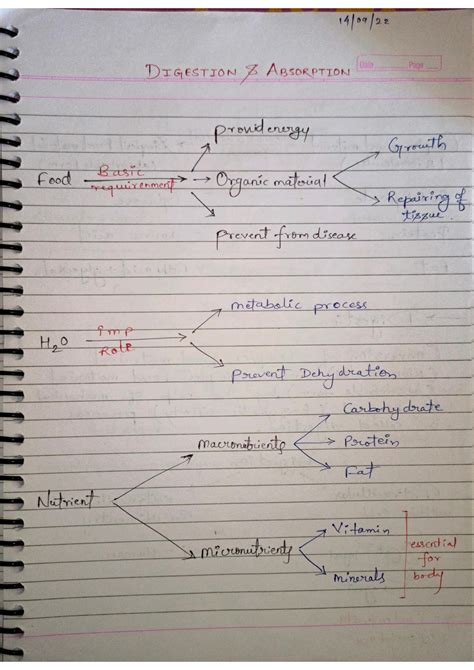 14/09/22
Date Page
DIGESTION & ABSORPTION
Provid energy
Growth
Food Basic requirement Organic material
Repairing of
tissue.
Prevent from disease
metabolic process
H2O imp Role
Prevent Dehydration
Carbohydrate
macronutrients Protein
Fat
Nutrient
Vitamin
micronutrients essential
for
minerals body